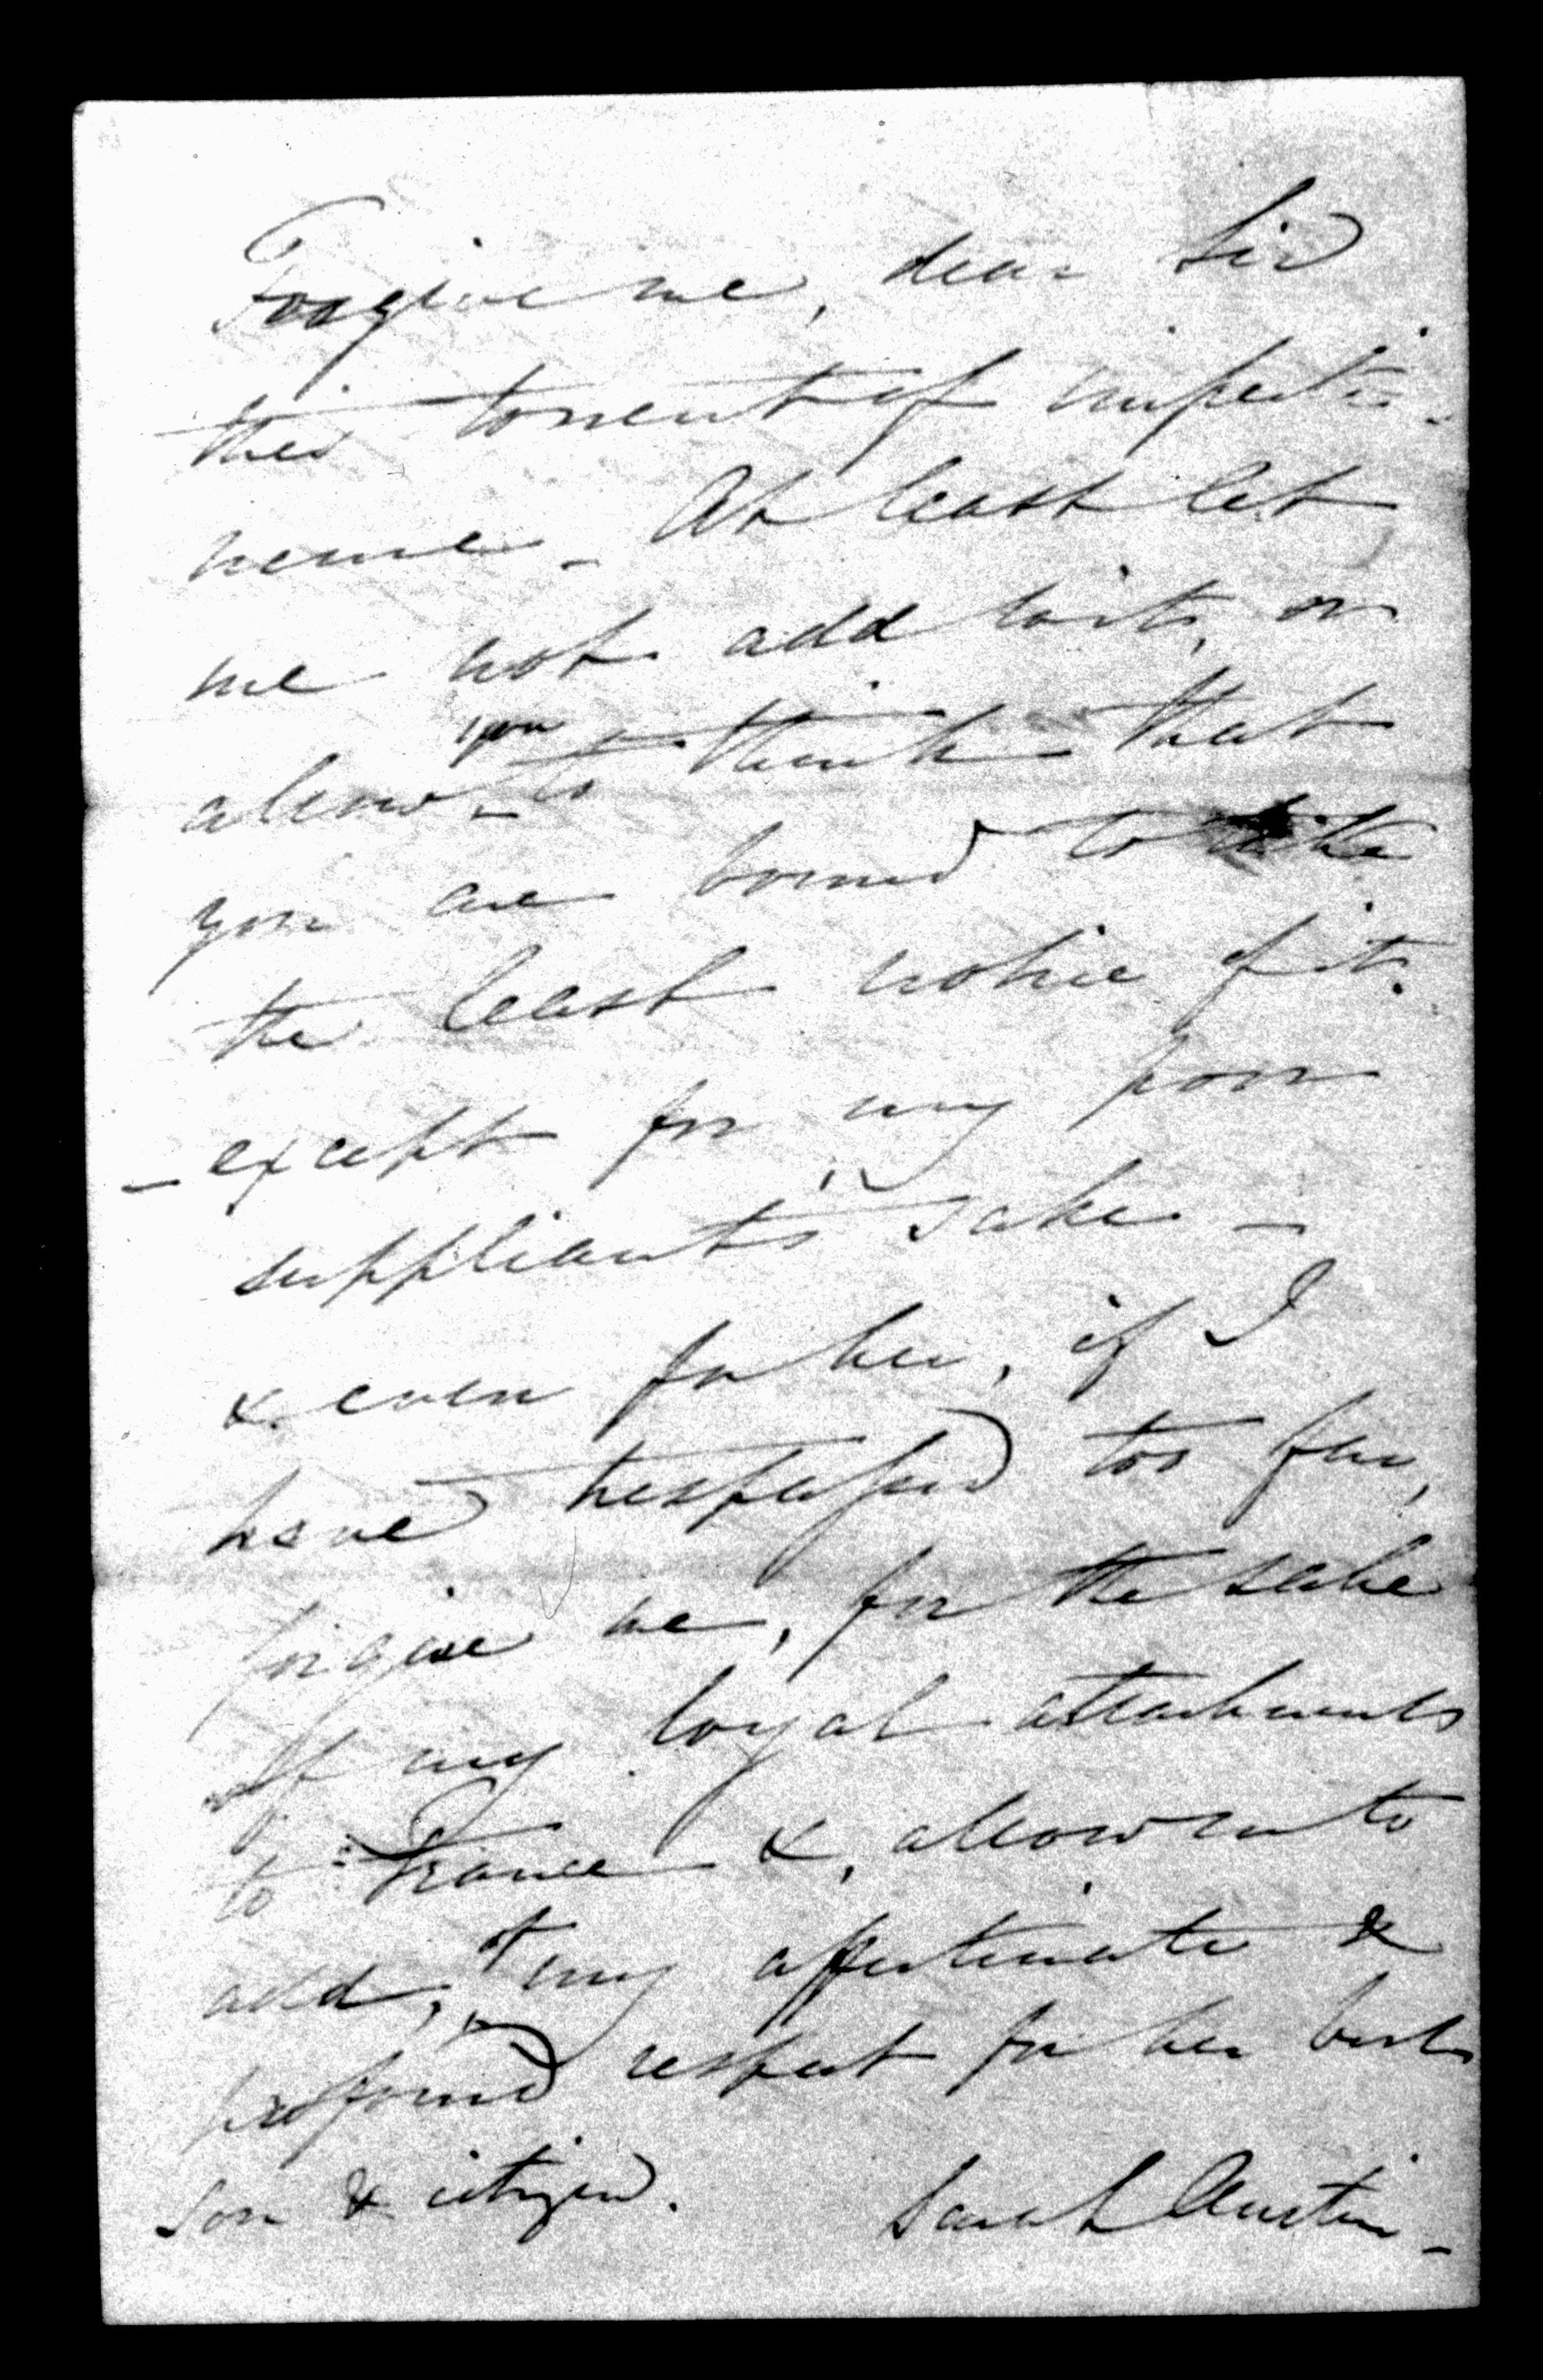 Forgive me, dear Sir
this torrent of imperti-
nence - At least let
me not add to it, or
allow you to think that
you are bound to take
the least notice of it.
- except for my poor
suppliants' sake -
& even for her, if I
have trespassed too far,
forgive me, for the sake
of my loyal attachments
to France &, allow me to
add, of my affectionate &
profound respect for her best
son & citizen.
Sarah Austin -